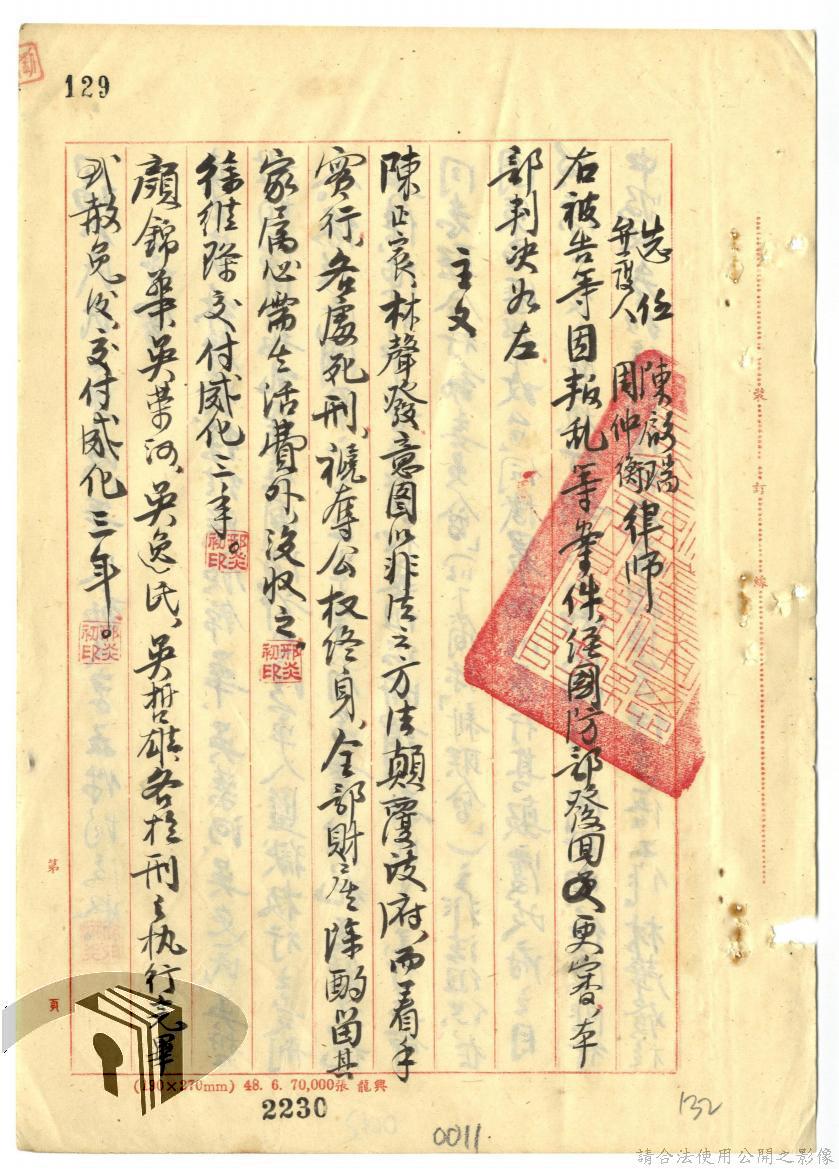 129
選任
辯護人
陳啟瑞
周仲衡
律師
右被告等因叛乱等案件經國防部發回更審本
部判決如左
主文
陳正宸、林聲發意图以非法之方法顛覆政府而着手
實行、各處死刑、褫奪公权終身、全部財產除酌留其
家屬必需生活費外、沒收之。
邢炎
初印
徐維琛交付感化三年。
邢炎
初印
顏錦華、吳榮河、吳逸民、吳哲雄各於刑之执行完畢
或赦免後、交付感化三年。
邢炎
初印
裝
訂
線
第
頁
(190×270mm) 48. 6. 70,000張 龍興
2230
0011
132
請合法使用公開之影像